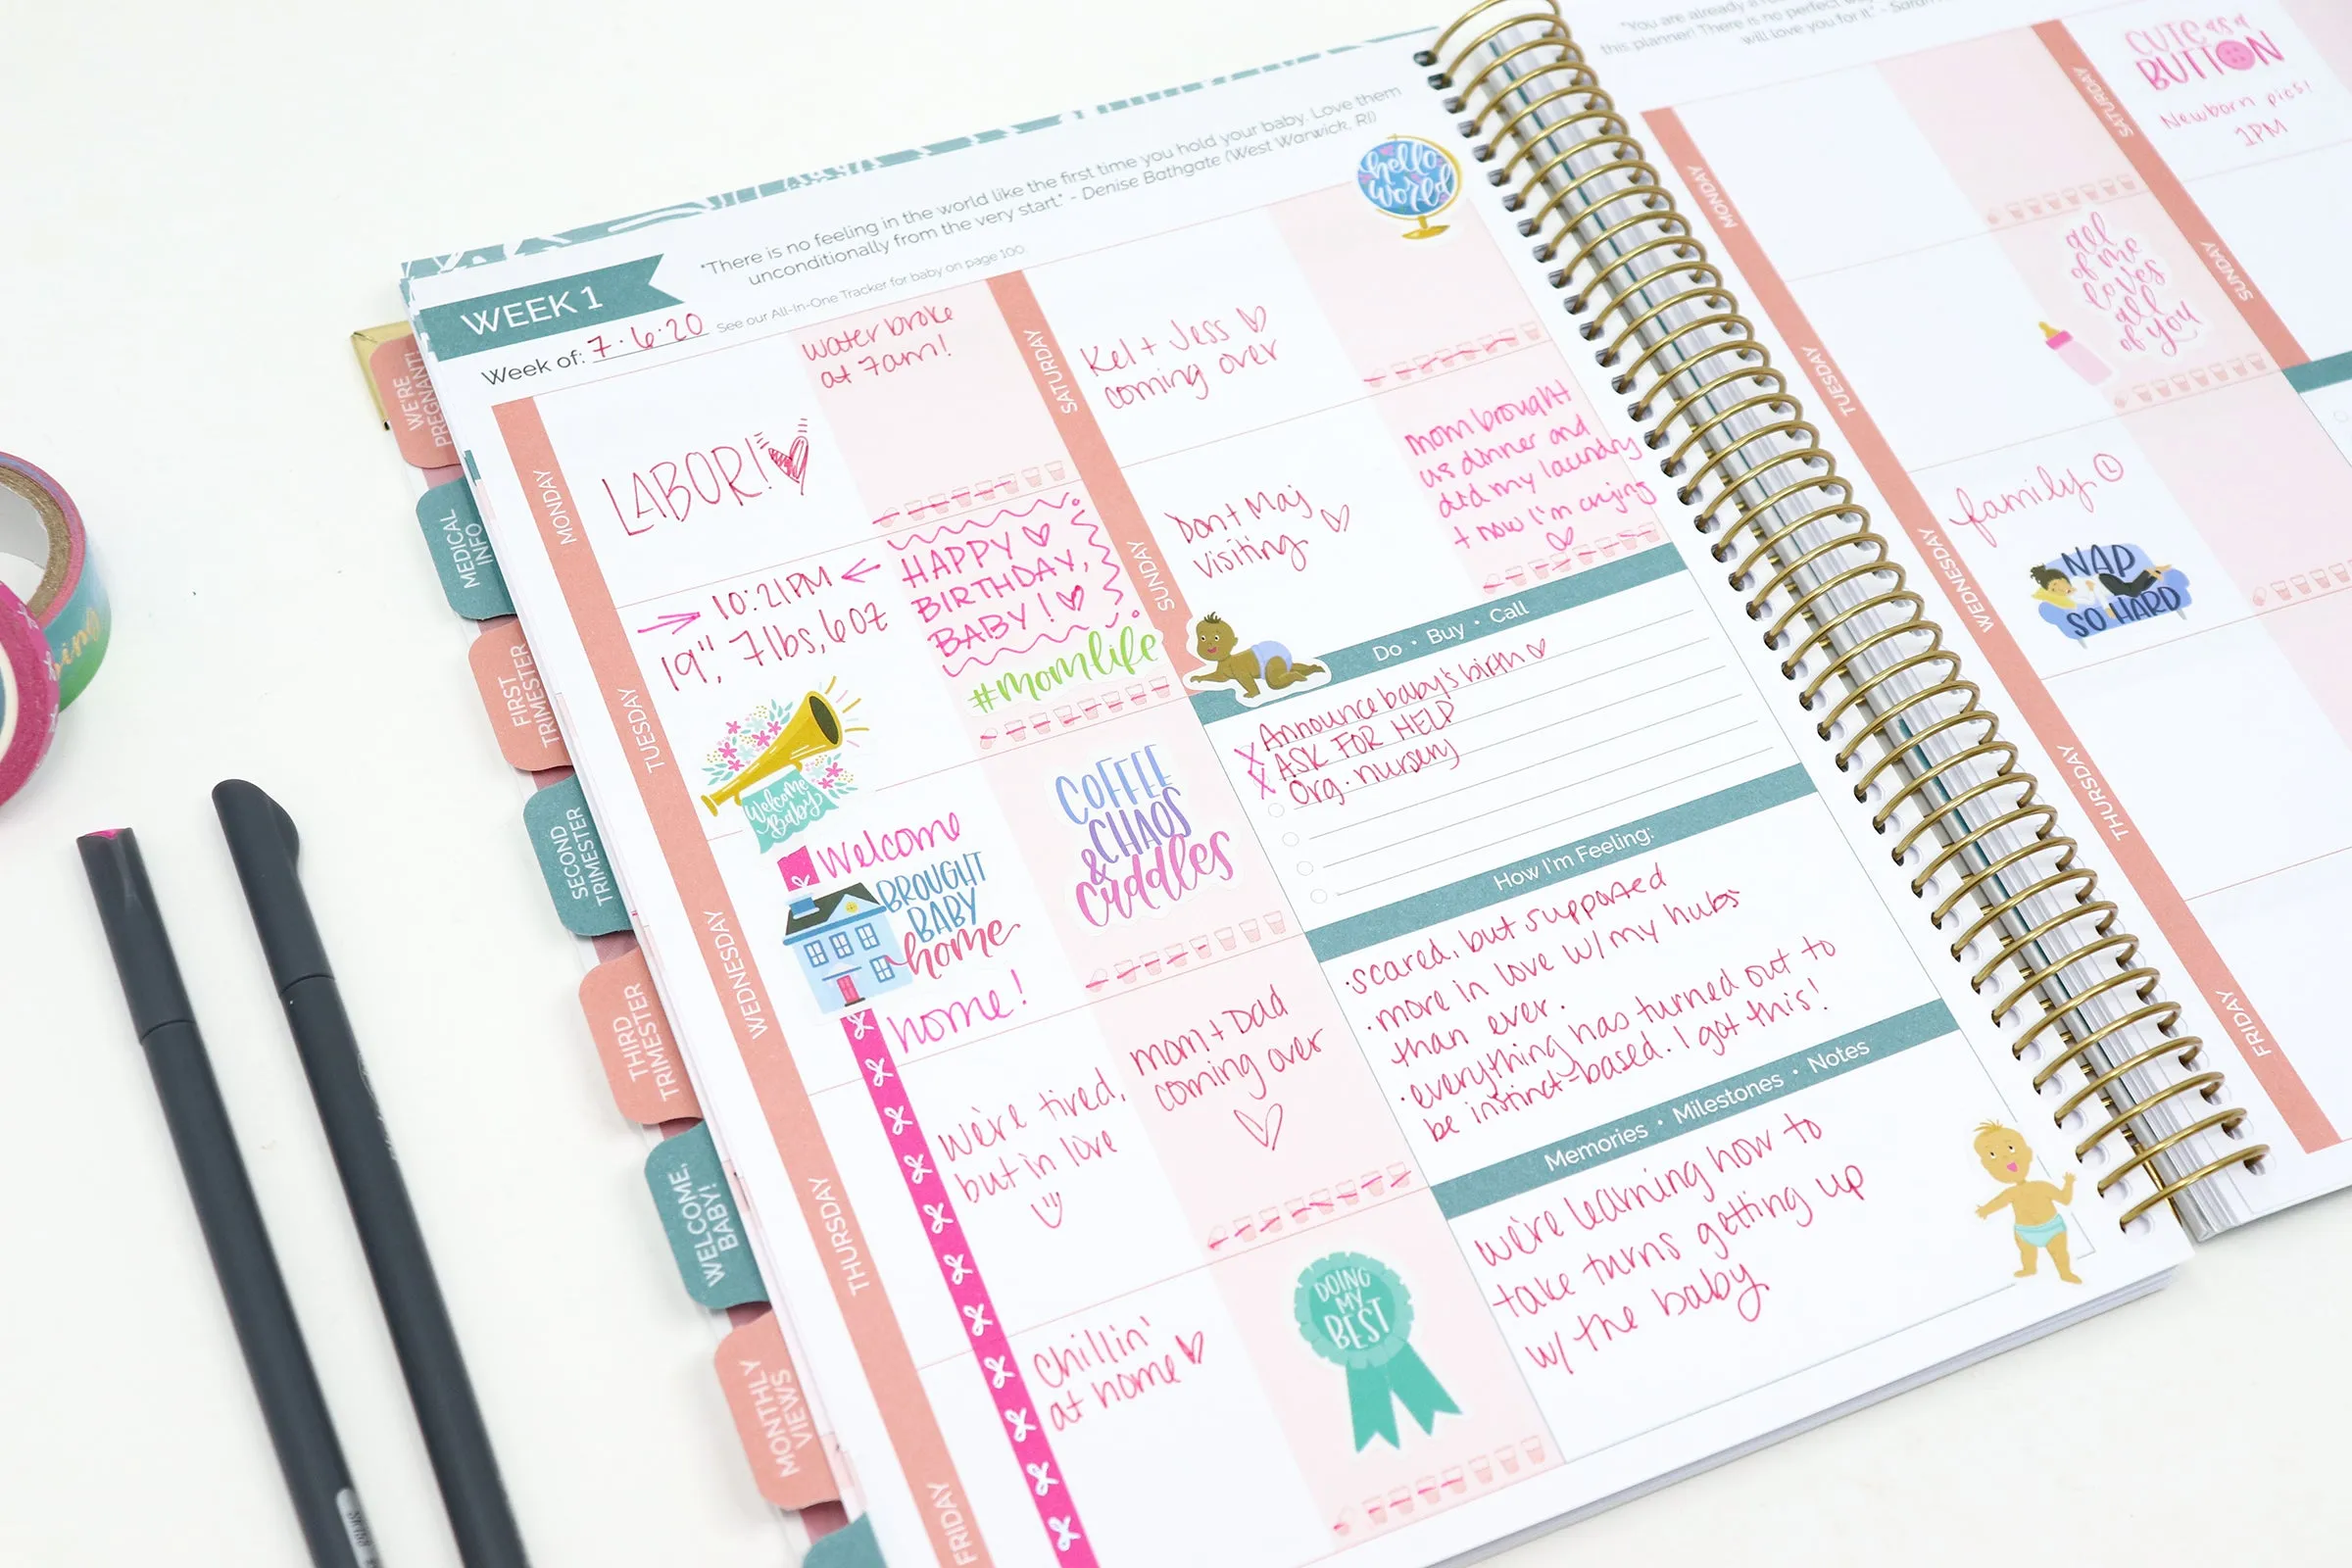 WE'RE
PREGNANT!
MEDICAL
INFO
FIRST
TRIMESTER
SECOND
TRIMESTER
THIRD
TRIMESTER
WELCOME,
BABY!
MONTHLY
VIEWS
WEEK 1
Week of: 7·6·20
"There is no feeling in the world like the first time you hold your baby. Love them
unconditionally from the very start." - Denise Bathgate (West Warwick, RI)
See our All-In-One Tracker for baby on page 100.
hello
world
MONDAY
LABOR!
water broke
at 7am!
TUESDAY
10:21PM
19", 7lbs, 6oz
Welcome
Baby
HAPPY
BIRTHDAY,
BABY!
#momlife
WEDNESDAY
Welcome
BROUGHT
BABY
home
home!
COFFEE
CHAOS
&
cuddles
THURSDAY
We're tired,
but in love
mom + Dad
coming over
FRIDAY
Chillin'
at home
DOING
MY
BEST
SATURDAY
Kel + Jess
coming over
SUNDAY
Don + Maj
visiting
mom brought
us dinner and
did my laundry
+ now I'm crying
Do • Buy • Call
X Announce baby's birth
X ASK FOR HELP
Org. nursery
How I'm Feeling:
·scared, but supported
·more in love w/ my hubs
than ever.
·everything has turned out to
be instinct-based. I got this!
Memories • Milestones • Notes
we're learning how to
take turns getting up
w/ the baby
"You are already a
this planner! There is no perfect
will love you for it." -
MONDAY
TUESDAY
all
of me
loves
all
of you
WEDNESDAY
family
NAP
SO HARD
THURSDAY
FRIDAY
SATURDAY
CUTE as a
BUTTON
Newborn pics!
1PM
SUNDAY